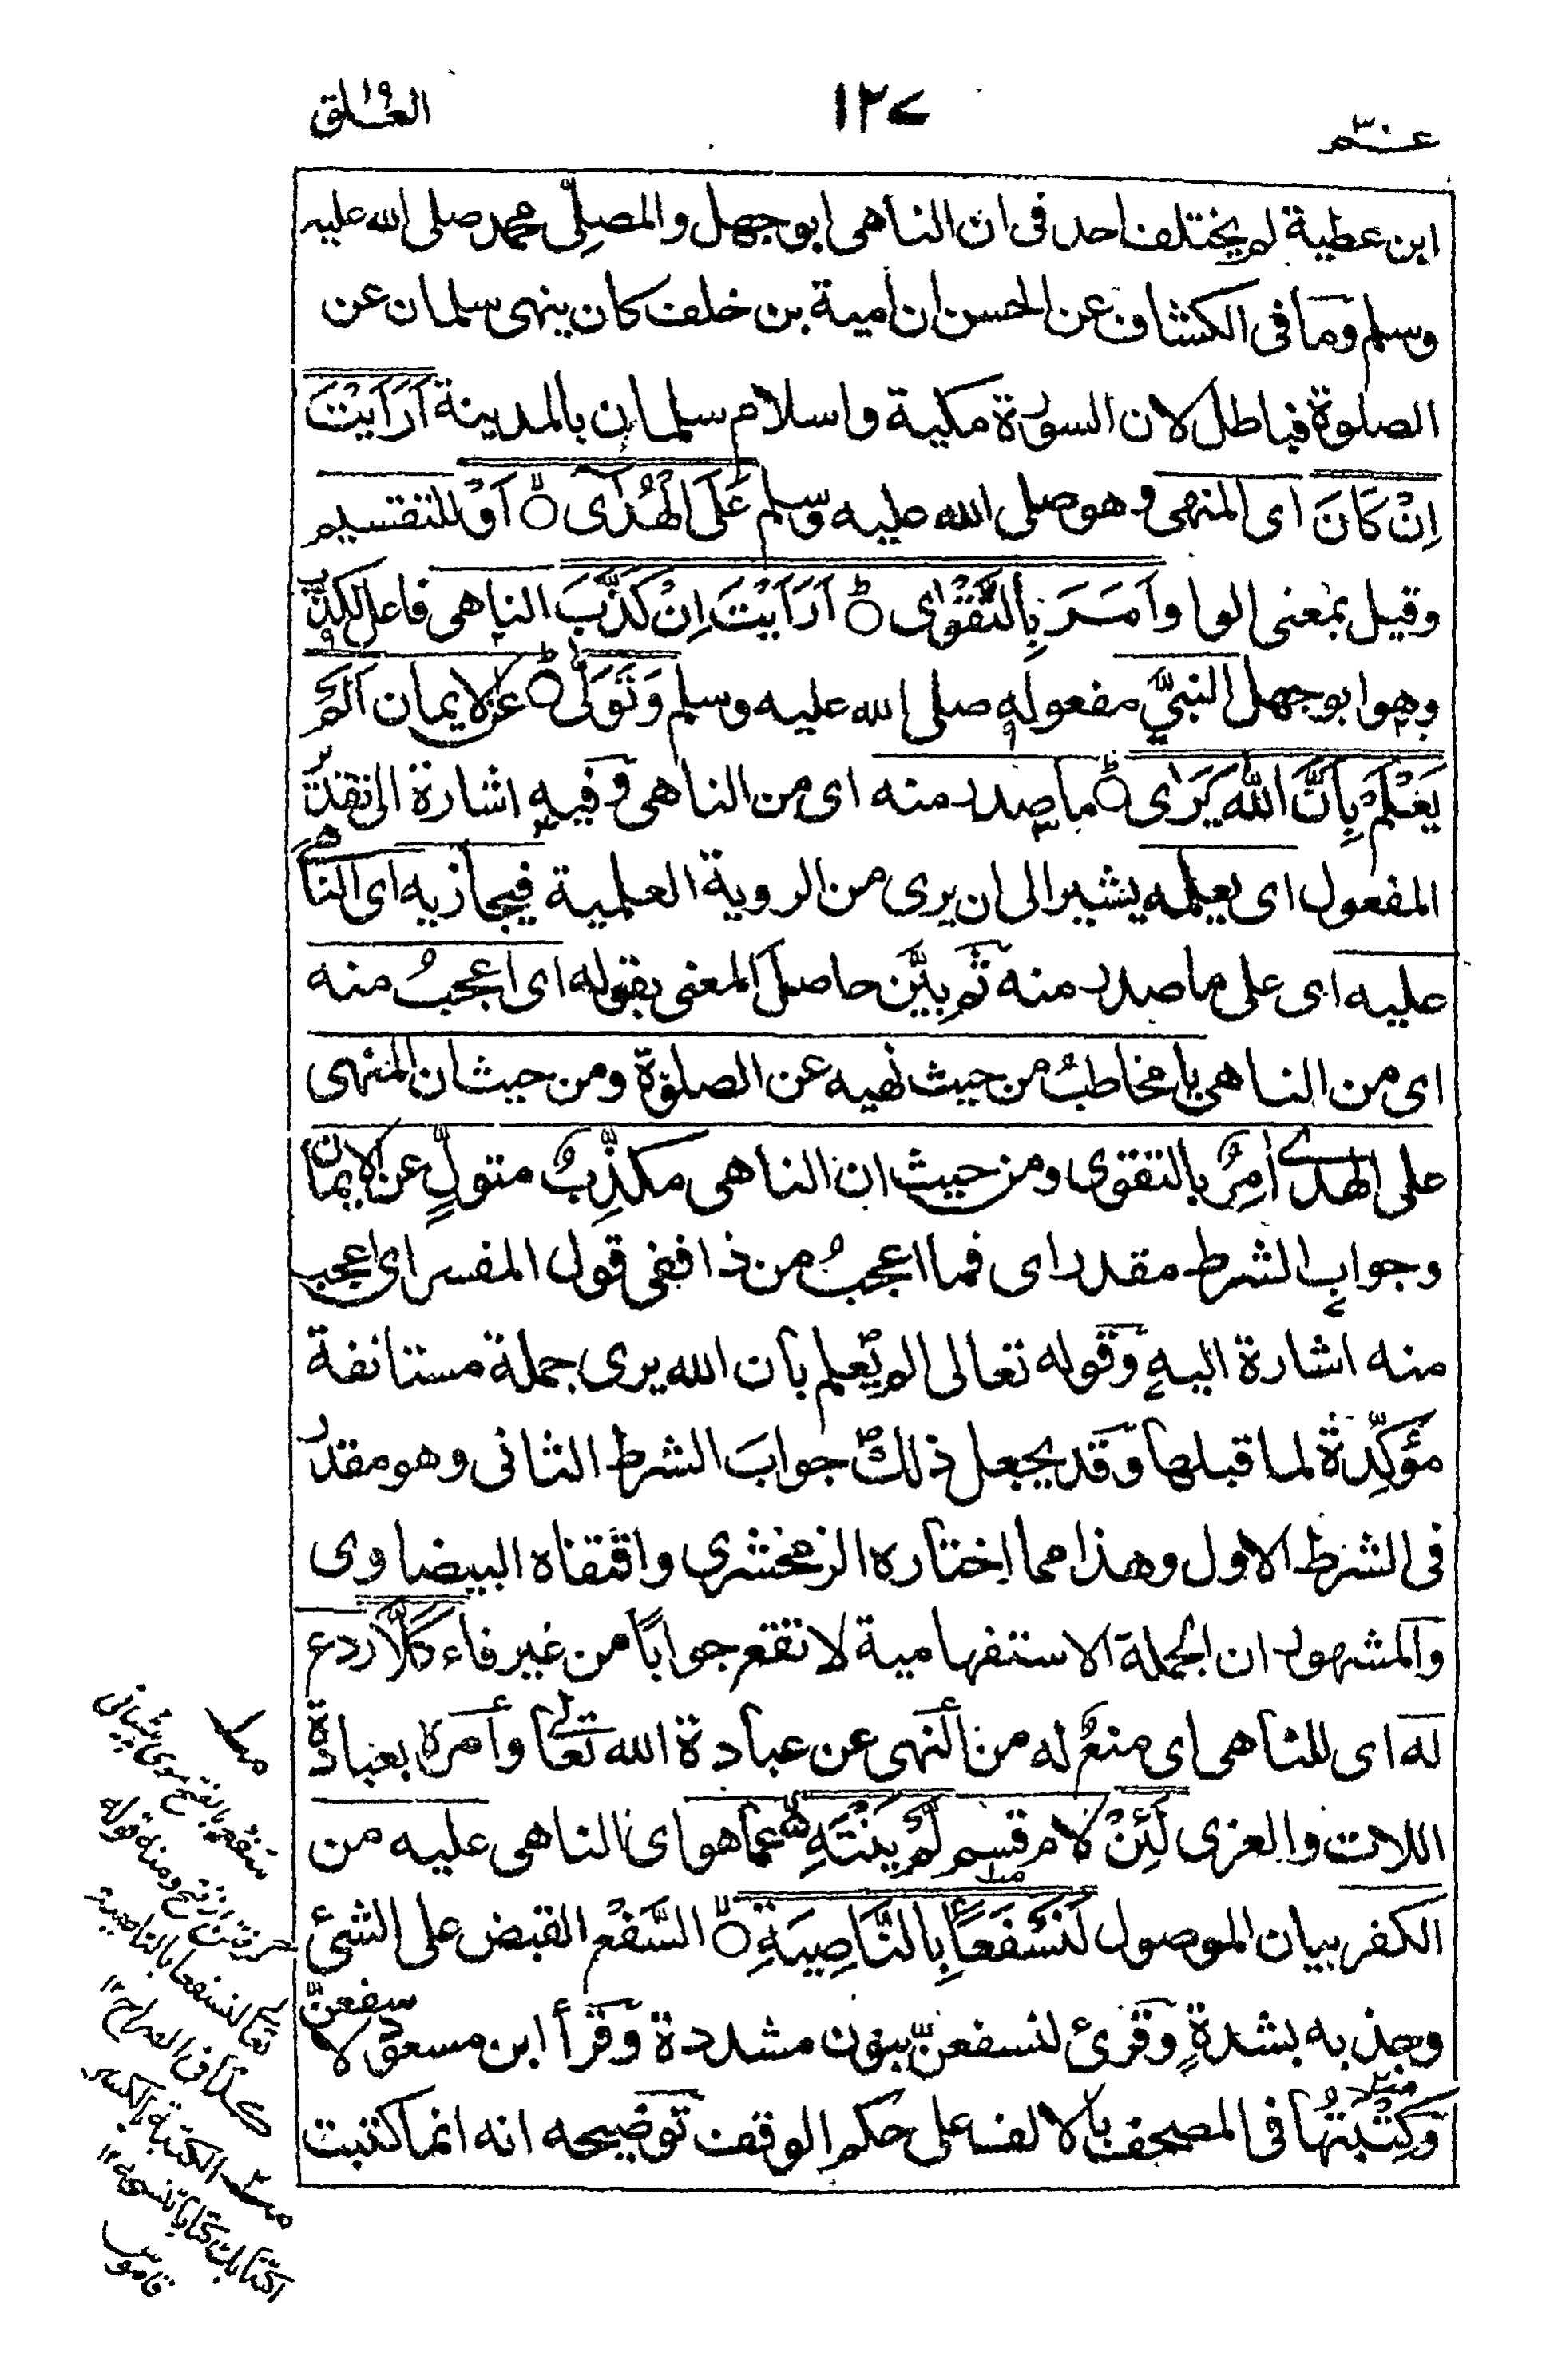 عم ٣٠
١٢٧
العلق ١٩
ابن عطية لم يختلف احد فى ان الناهى ابو جهل والمصلِّى محمد صلى الله عليه
وسلم وما فى الكشاف عن الحسن ان امية بن خلف كان ينهى سلمان عن
الصلوة فباطل لان السورة مكية واسلام سلمان بالمدينة اَرَاَيْتَ
اِنْ كَانَ اى المنهى وهو صلى الله عليه وسلم عَلَى الْهُدٰٓى اَوْ للتقسيم
وقيل بمعنى الواو اَمَرَ بِالتَّقْوٰى اَرَاَيْتَ اِنْ كَذَّبَ الناهى فاعل لكذّب
وهو ابو جهل النبيَّ مفعوله صلى الله عليه وسلم وَتَوَلّٰى عن الايمان اَلَمْ
يَعْلَمْ بِاَنَّ اللّٰهَ يَرٰى ما صدر منه اى من الناهى وفيه اشارة الى تقدير
المفعول اى يعلمه يشير الى ان يرى من الروية العلمية فيجازيه اى الناهى
عليه اى على ما صدر منه ثم بيَّن حاصل المعنى بقوله اى اعجبُ منه
اى من الناهى يا مخاطبُ من حيث نهيه عن الصلوة ومن حيث ان المنهى
على الهدى اٰمِرٌ بالتقوى ومن حيث ان الناهى مكذِّبٌ متولٍّ عن الايمان
وجواب الشرط مقدر اى فما اعجبُ من ذا ففى قول المفسر اى اعجب
منه اشارة اليه وقوله تعالى الم يعلم بان الله يرى جملة مستانفة
مؤكِّدة لما قبلها وقد يجعل ذلك جوابَ الشرط الثانى وهو مقدر
فى الشرط الاول وهذا مما اختاره الزمخشرى واقتفاه البيضاوى
والمشهور ان الجملة الاستفهامية لا تقع جوابًا من غير فاء كَلَّا ردع
له اى للناهى اى منعٌ له من النهى عن عبادة الله تعالى وأمره بعبادة
اللات والعزى لَئِنْ لام قسم لَّمْ يَنْتَهِ عما هو اى الناهى عليه من
الكفر بيان للموصول لَنَسْفَعًا بِالنَّاصِيَةِ السَّفْع القبض على الشئ
وجذبه بشدةٍ وقرئ لنسفعنّ بنون مشددة وقرأ ابن مسعود لاسفعنّ
وكِتْبَتُها فى المصحف بالالف على حكم الوقف توضيحه انه انما كتبت
سفع بالفتح موى پيشانى
گرفتن از فتح ومنه قوله
تعالى لنسفعا بالناصية
كذا فى الصراح ١٢
الكتبة بالكسر
اكتتابك كتابا تنسخه ١٢
قاموس